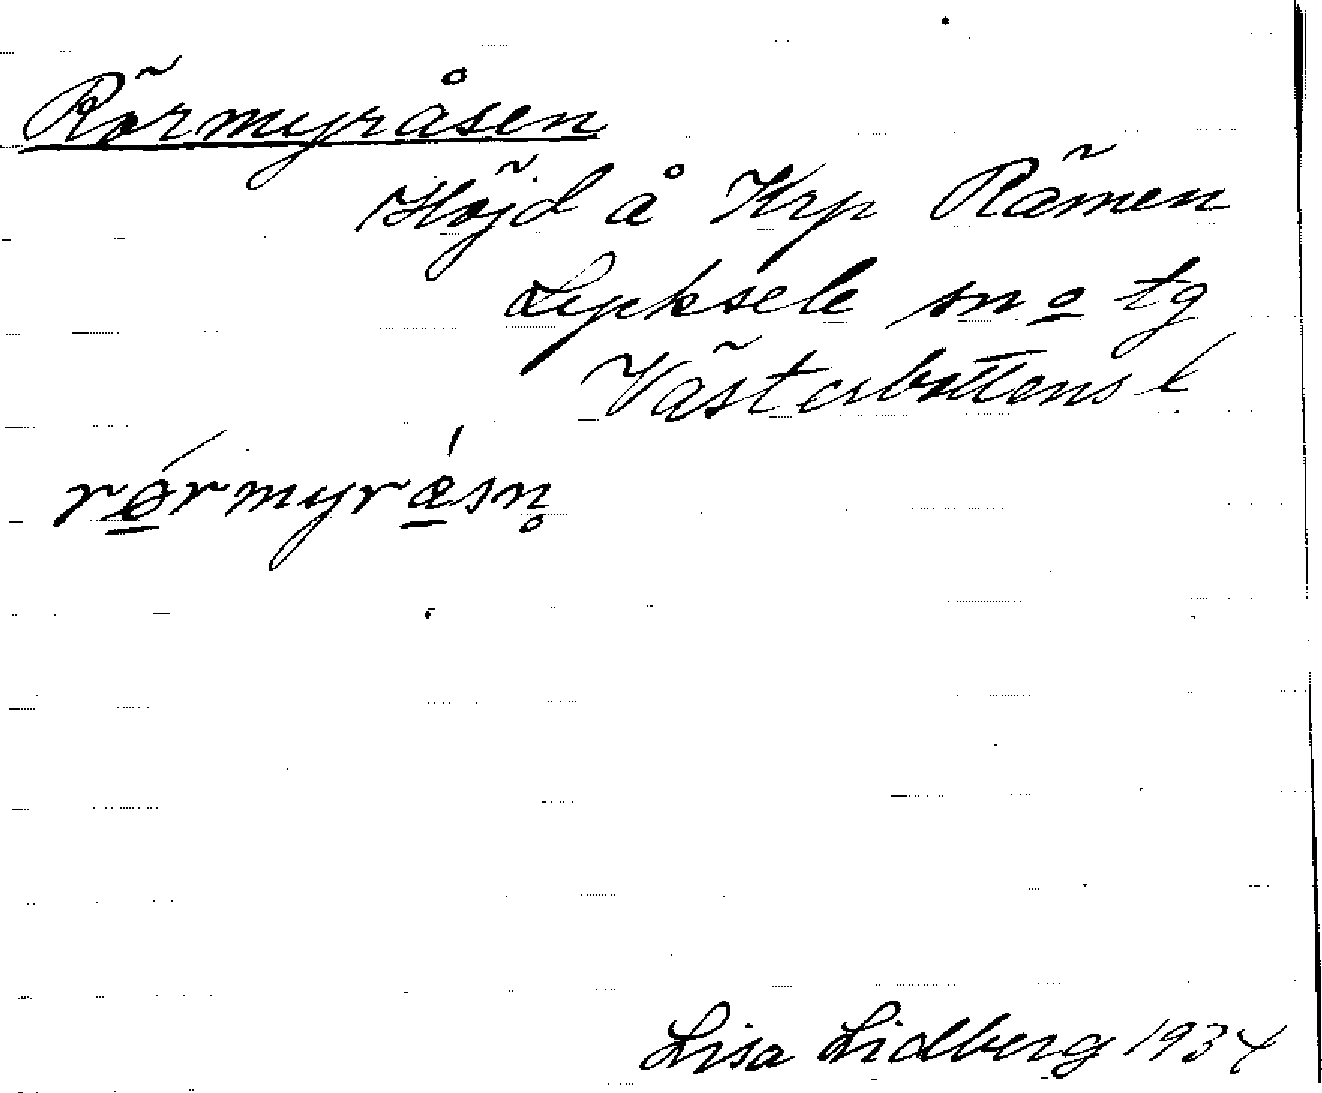 Rörmyråsen
Höjd å Krp Rämen
Lycksele sn o tg
Västerbottens l
rǿrmyråsn̥
Lisa Lidberg 1934